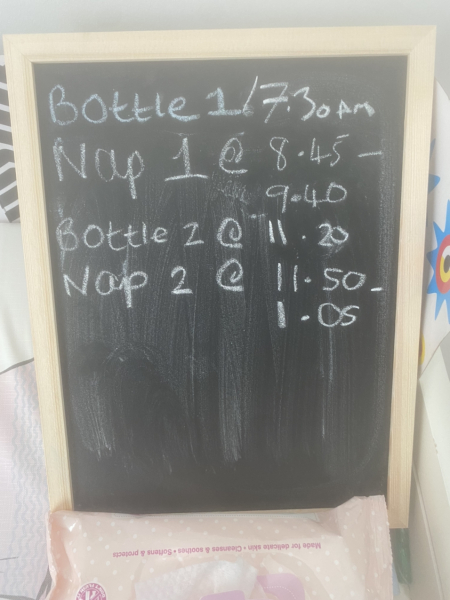 Bottle 1/7.30am
Nap 1 @ 8.45 -
9.40
Bottle 2 @ 11.20
Nap 2 @ 11.50 -
1.05
Made for delicate skin • Cleanses & soothes • Softens & protects